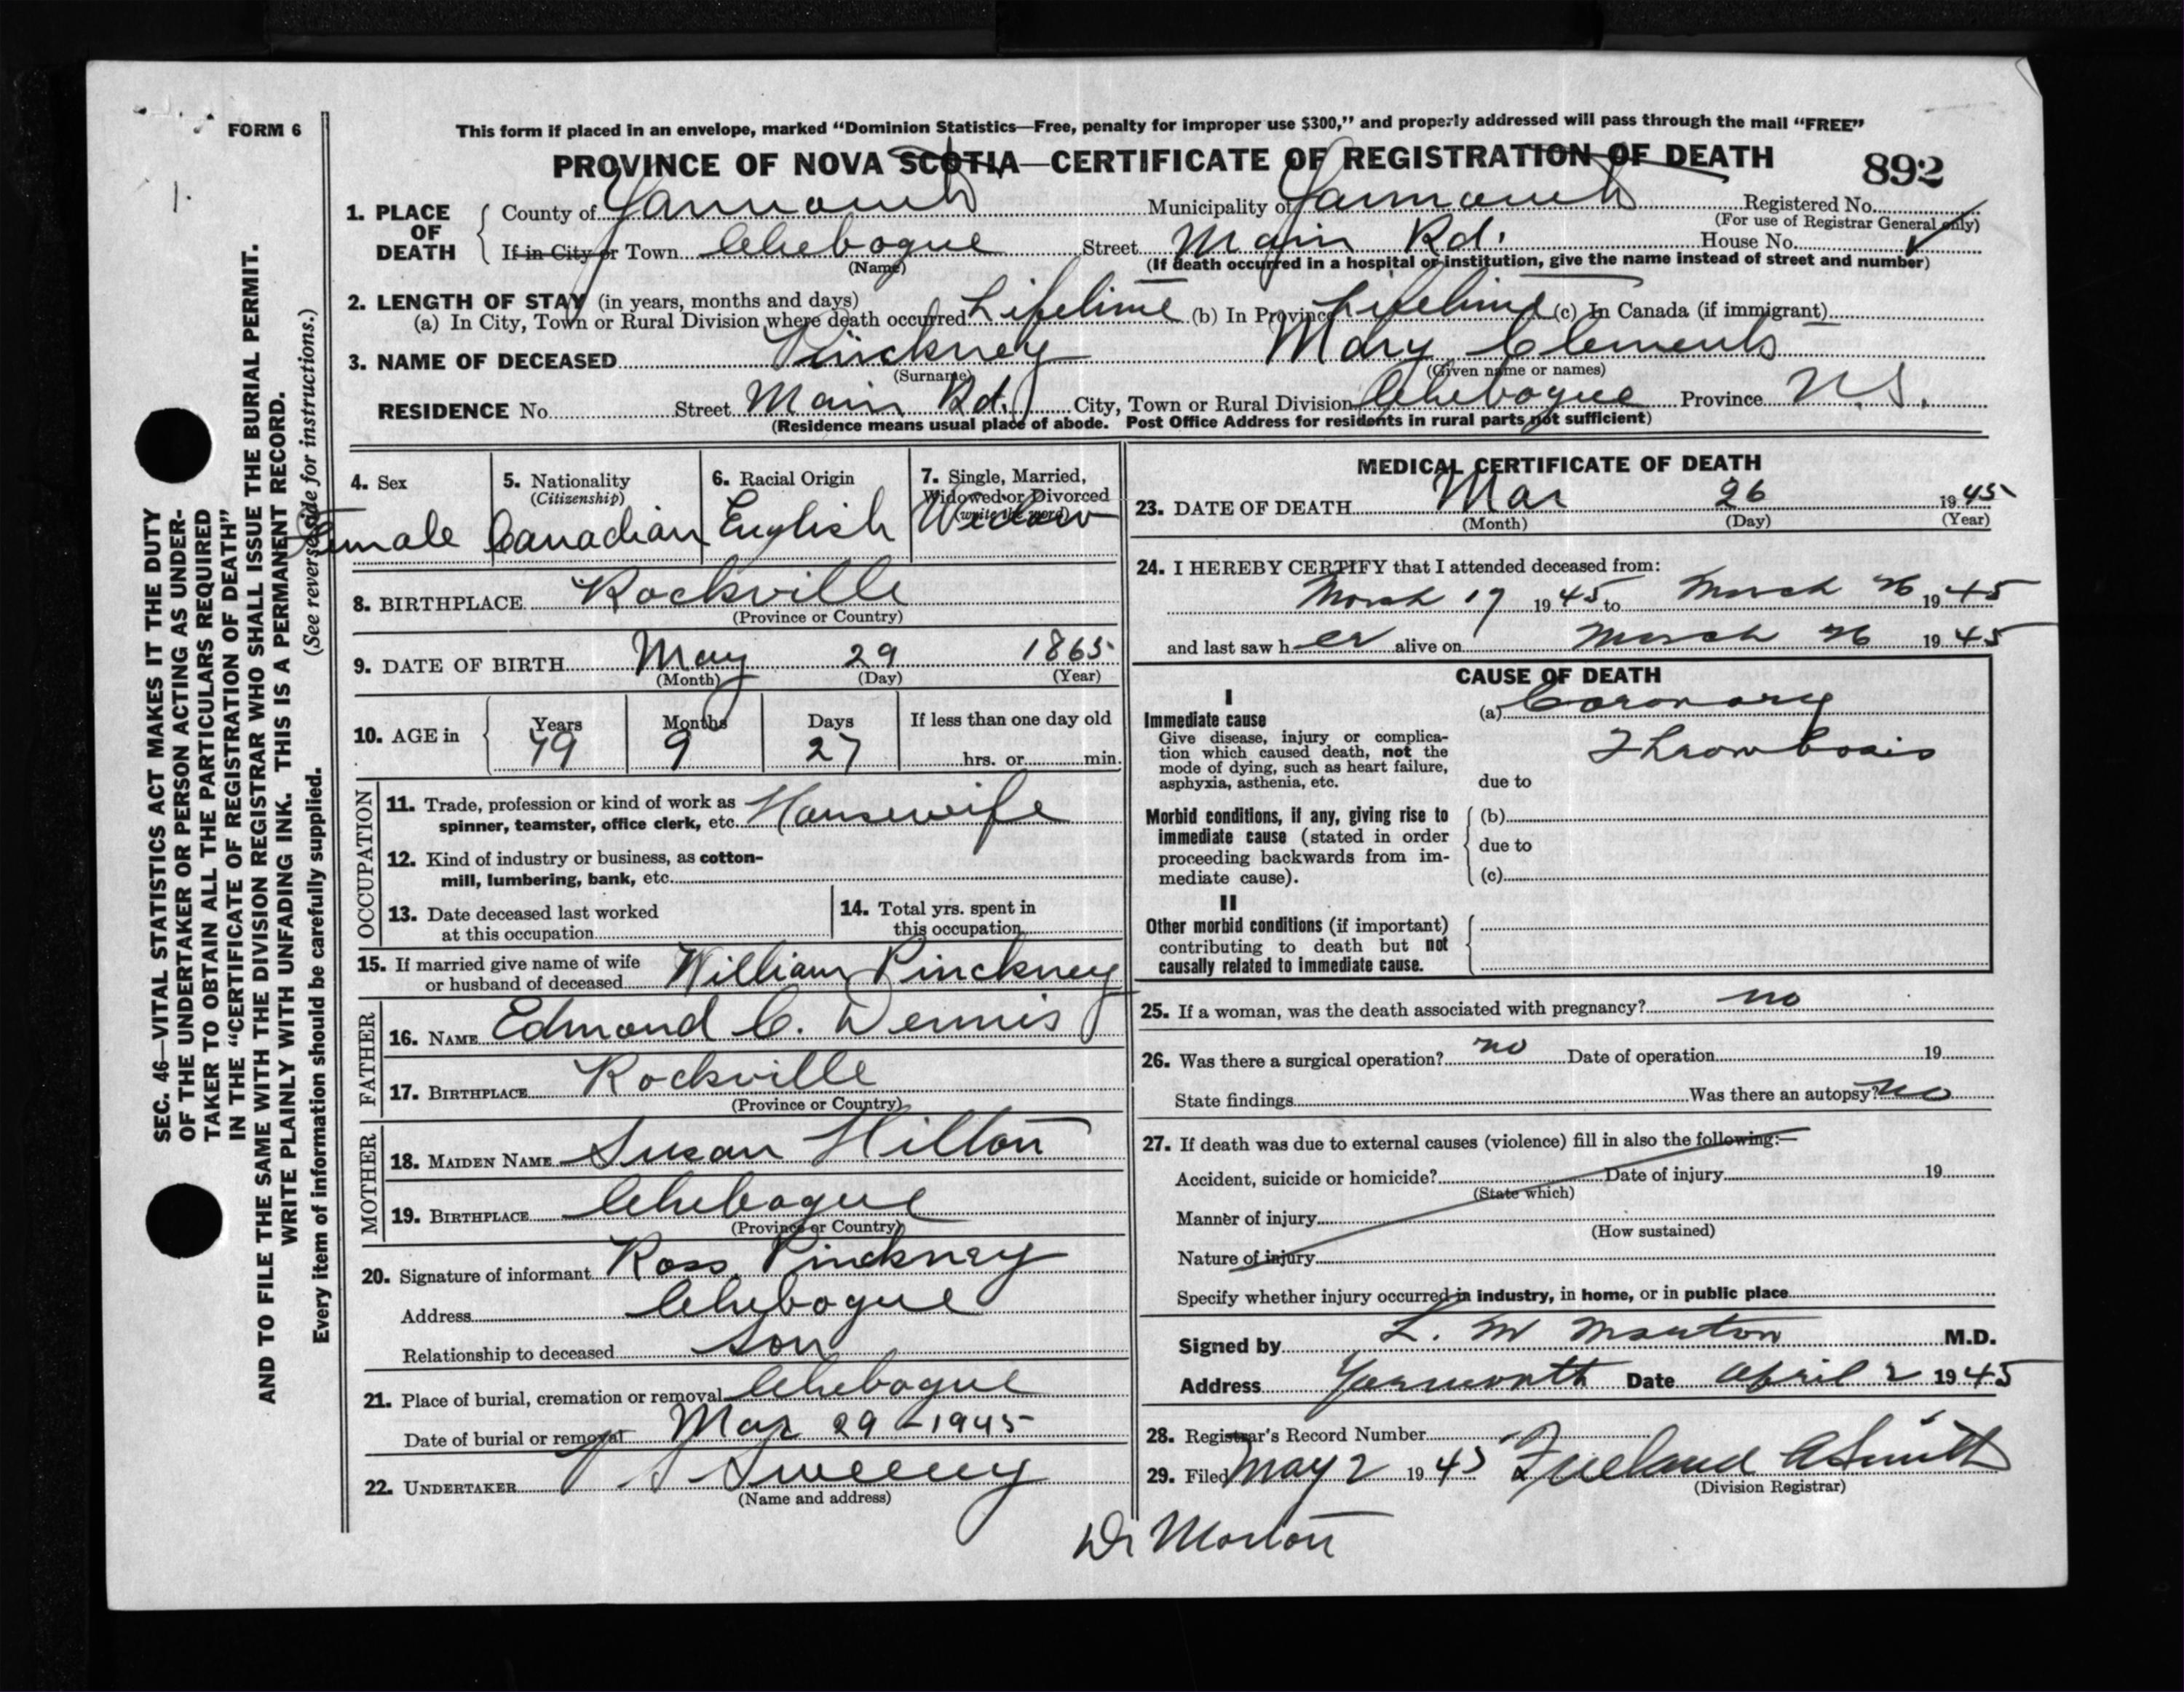 FORM 6
This form if placed in an envelope, marked “Dominion Statistics—Free, penalty for improper use $300,” and properly addressed will pass through the mail “FREE”
PROVINCE OF NOVA SCOTIA—CERTIFICATE OF REGISTRATION OF DEATH 892
1. PLACE OF DEATH County of Yarmouth Municipality of Yarmouth Registered No.
(For use of Registrar General only)
If in City or Town Chebogue Street Main Rd. House No.
(Name) (If death occurred in a hospital or institution, give the name instead of street and number)
2. LENGTH OF STAY (in years, months and days)
(a) In City, Town or Rural Division where death occurred Lifetime (b) In Province Lifetime (c) In Canada (if immigrant)
3. NAME OF DECEASED Pinckney Mary Clements
(Surname) (Given name or names)
RESIDENCE No. Street Main Rd. City, Town or Rural Division Chebogue Province N.S.
(Residence means usual place of abode. Post Office Address for residents in rural parts not sufficient)
SEC. 46—VITAL STATISTICS ACT MAKES IT THE DUTY
OF THE UNDERTAKER OR PERSON ACTING AS UNDER-
TAKER TO OBTAIN ALL THE PARTICULARS REQUIRED
IN THE “CERTIFICATE OF REGISTRATION OF DEATH”
AND TO FILE THE SAME WITH THE DIVISION REGISTRAR WHO SHALL ISSUE THE BURIAL PERMIT.
WRITE PLAINLY WITH UNFADING INK. THIS IS A PERMANENT RECORD.
Every item of information should be carefully supplied. (See reverse side for instructions.)
4. Sex 5. Nationality 6. Racial Origin 7. Single, Married,
(Citizenship) Widowed or Divorced
(write the word)
Female Canadian English Widow
8. BIRTHPLACE Rockville
(Province or Country)
9. DATE OF BIRTH May 29 1865
(Month) (Day) (Year)
10. AGE in Years Months Days If less than one day old
79 9 27 hrs. or min.
OCCUPATION
11. Trade, profession or kind of work as
spinner, teamster, office clerk, etc. Housewife
12. Kind of industry or business, as cotton-
mill, lumbering, bank, etc.
13. Date deceased last worked
at this occupation
14. Total yrs. spent in
this occupation
15. If married give name of wife
or husband of deceased William Pinckney
FATHER
16. NAME Edmond C. Dennis
17. BIRTHPLACE Rockville
(Province or Country)
MOTHER
18. MAIDEN NAME Susan Hilton
19. BIRTHPLACE Chebogue
(Province or Country)
20. Signature of informant Ross Pinckney
Address Chebogue
Relationship to deceased Son
21. Place of burial, cremation or removal Chebogue
Date of burial or removal Mar 29 - 1945
22. UNDERTAKER Sweeny
(Name and address)
MEDICAL CERTIFICATE OF DEATH
23. DATE OF DEATH Mar 26 1945
(Month) (Day) (Year)
24. I HEREBY CERTIFY that I attended deceased from:
March 17 1945 to March 26 1945
and last saw her alive on March 26 1945
CAUSE OF DEATH
I
Immediate cause
Give disease, injury or complica-
tion which caused death, not the
mode of dying, such as heart failure,
asphyxia, asthenia, etc.
(a) Coronary
Thrombosis
due to
Morbid conditions, if any, giving rise to
immediate cause (stated in order
proceeding backwards from im-
mediate cause).
(b)
due to
(c)
II
Other morbid conditions (if important)
contributing to death but not
causally related to immediate cause.
25. If a woman, was the death associated with pregnancy? no
26. Was there a surgical operation? no Date of operation 19
State findings Was there an autopsy? no
27. If death was due to external causes (violence) fill in also the following:—
Accident, suicide or homicide? Date of injury 19
(State which)
Manner of injury
(How sustained)
Nature of injury
Specify whether injury occurred in industry, in home, or in public place
Signed by L. M Morton M.D.
Address Yarmouth Date April 2 1945
28. Registrar's Record Number
29. Filed May 2 1945 Freeland A Smith
(Division Registrar)
Dr Morton